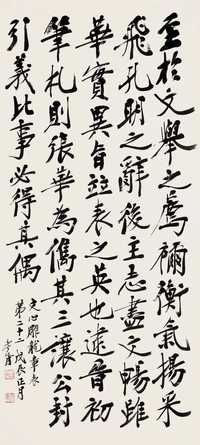 至於文舉之薦禰衡氣揚采
飛孔明之辭後主志盡文暢雖
華實異旨竝表之英也逮晉初
筆札則張華為儁其三讓公封
引義比事必得其偶
文心雕龍章表
第二十二 戊辰正月
孝胥